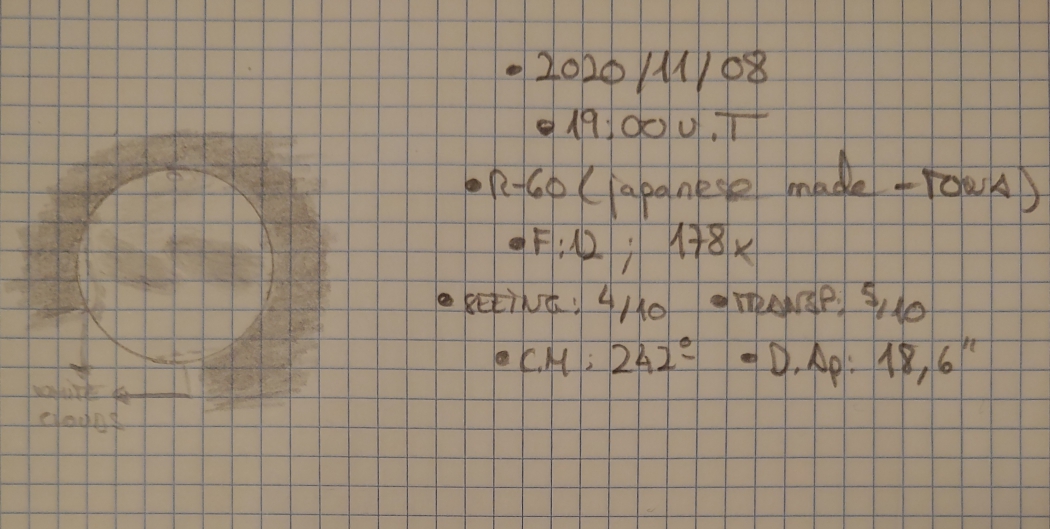 • 2020/11/08
• 19:00 U.T
• R-60 (japanese made - Towa)
• F:12 ; 178x
• SEEING: 4/10 • TRANSP: 5/10
• C.M: 242º • D.Ap: 18,6"
white
clouds